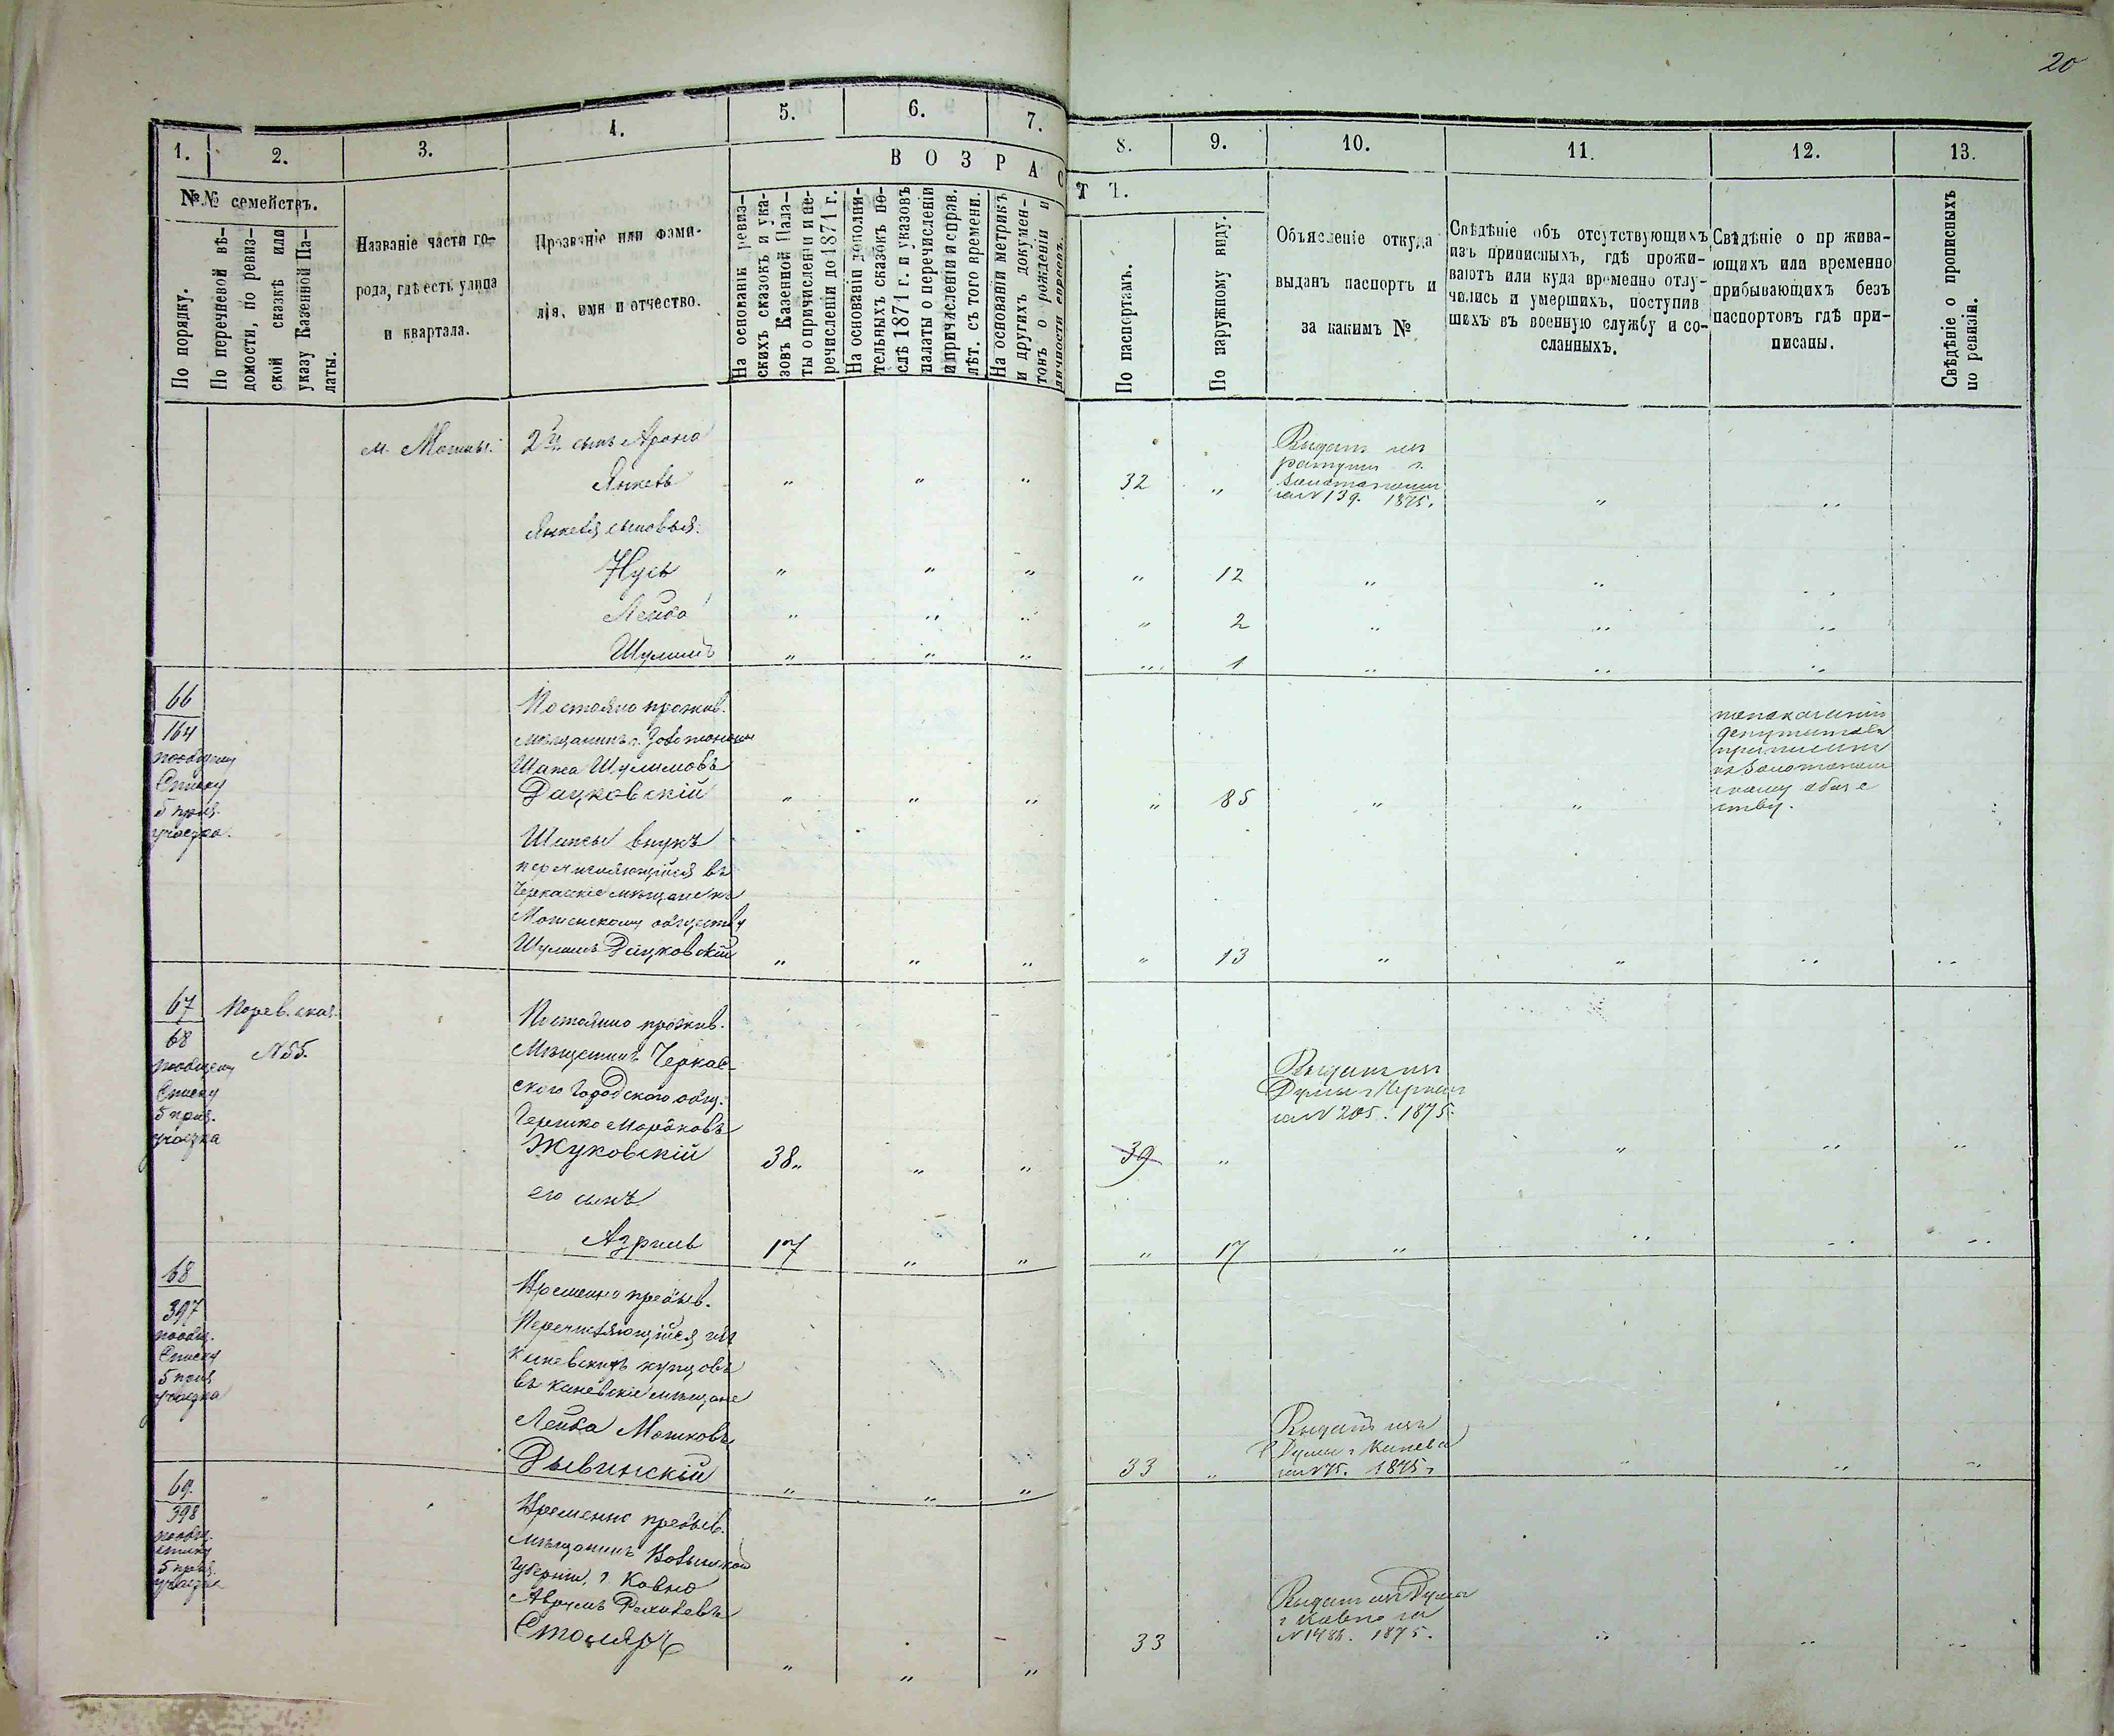 20
1.
2.
3.
4.
5.
6.
7.
8.
9.
10.
11.
12.
13.
№№ семействъ.
По порядку.
По перечневой вѣ-
домости, по ревиз-
ской сказкѣ или
указу Казенной Па-
латы.
Названіе части го-
рода, гдѣ есть улица
и квартала.
Прозваніе или фами-
лія, имя и отчество.
ВОЗРАСТЪ.
На основаніи ревиз-
скихъ сказокъ и ука-
зовъ Казенной Пала-
ты о причисленіи и пе-
речисленіи до 1871 г.
На основаніи дополни-
тельныхъ сказокъ по-
слѣ 1871 г. и указовъ
палаты о перечисленіи
и причисленіи и справ.
лѣт. съ того времени.
На основаніи метрикъ
и другихъ докумен-
товъ о рожденіи и
личности евреевъ.
По паспортамъ.
По наружному виду.
Объясненіе откуда
выданъ паспортъ и
за какимъ №
Свѣдѣніе объ отсутствующихъ
изъ приписныхъ, гдѣ прожи-
ваютъ или куда временно отлу-
чились и умершихъ, поступив
шихъ въ военную службу и со-
сланныхъ.
Свѣдѣніе о пр жива-
ющихъ или временно
прибывающихъ безъ
паспортовъ гдѣ при-
писаны.
Свѣдѣніе о прописныхъ
по ревизіи.
м. Мошны.
2й сынъ Арона
Янкель
32
Выданъ изъ
ратуши г.
за № 139. 1875.
Янкеля сыновья:
Нусь
12
Лейба
2
Шулимъ
1
66
164
пообщему
Списку
5 приз.
участка.
Постоянно прожив.
мѣщанинъ г. Золотоноши
Шапса Шулимовъ
Дацковскій
85
приписанъ
Шапсы внукъ
перечисляющійся въ
Черкасскіе мѣщане къ
Мошенскому обществу
Шулимъ Дацковскій
13
67
68
пообщему
Списку
5 приз.
участка
Порев. сказ.
№ 55.
Постоянно прожив.
Мѣщанинъ Черкас-
ского Городского общ.
Гершко Мордковъ
Жуковскій
38
39
Выданъ изъ
Думы г. Черкасъ
за № 205. 1875.
его сынъ
Азриль
17
17
68
397
пообщ.
Списку
5 приз.
участка
Временно пребыв.
Перечисляющійся изъ
Каневскихъ купцовъ
въ Каневскіе мѣщане
Лейба Мошковъ
Дывинскій
33
Выданъ изъ
Думы г. Канева
за № 75. 1875.
69.
398
пообщ.
списку
5 приз.
участка
Временно пребыв.
мѣщанинъ
Губерніи, г. Ковно
Аврумъ
Столяръ
33
Выданъ изъ Думы
г. Ковно за
1875.